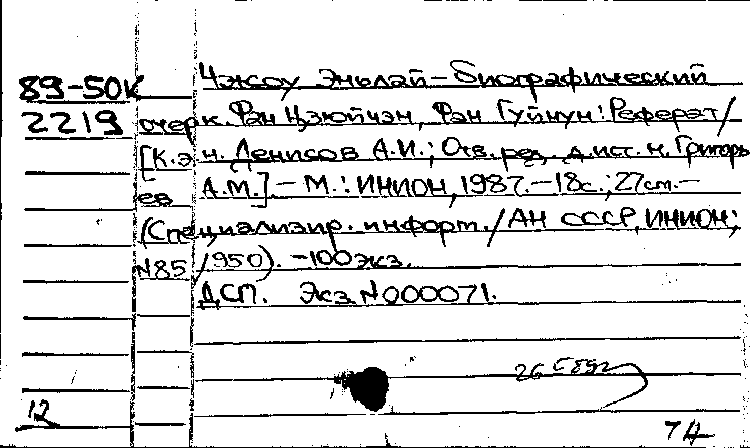 89-50К
2219
Чжоу Эньлай - биографический
очерк. Фэн Цзюйчэн, Фэн Гуйнун: Реферат /
[К.э.н. Денисов А.И.; Отв. ред. д.ист.н. Григорь
ев А.М.] - М.: ИНИОН, 1987. - 18с.; 27см. -
(Специализир. информ. / АН СССР, ИНИОН;
N85/950). - 100экз.
ДСП. Экз. N000071.
12
74